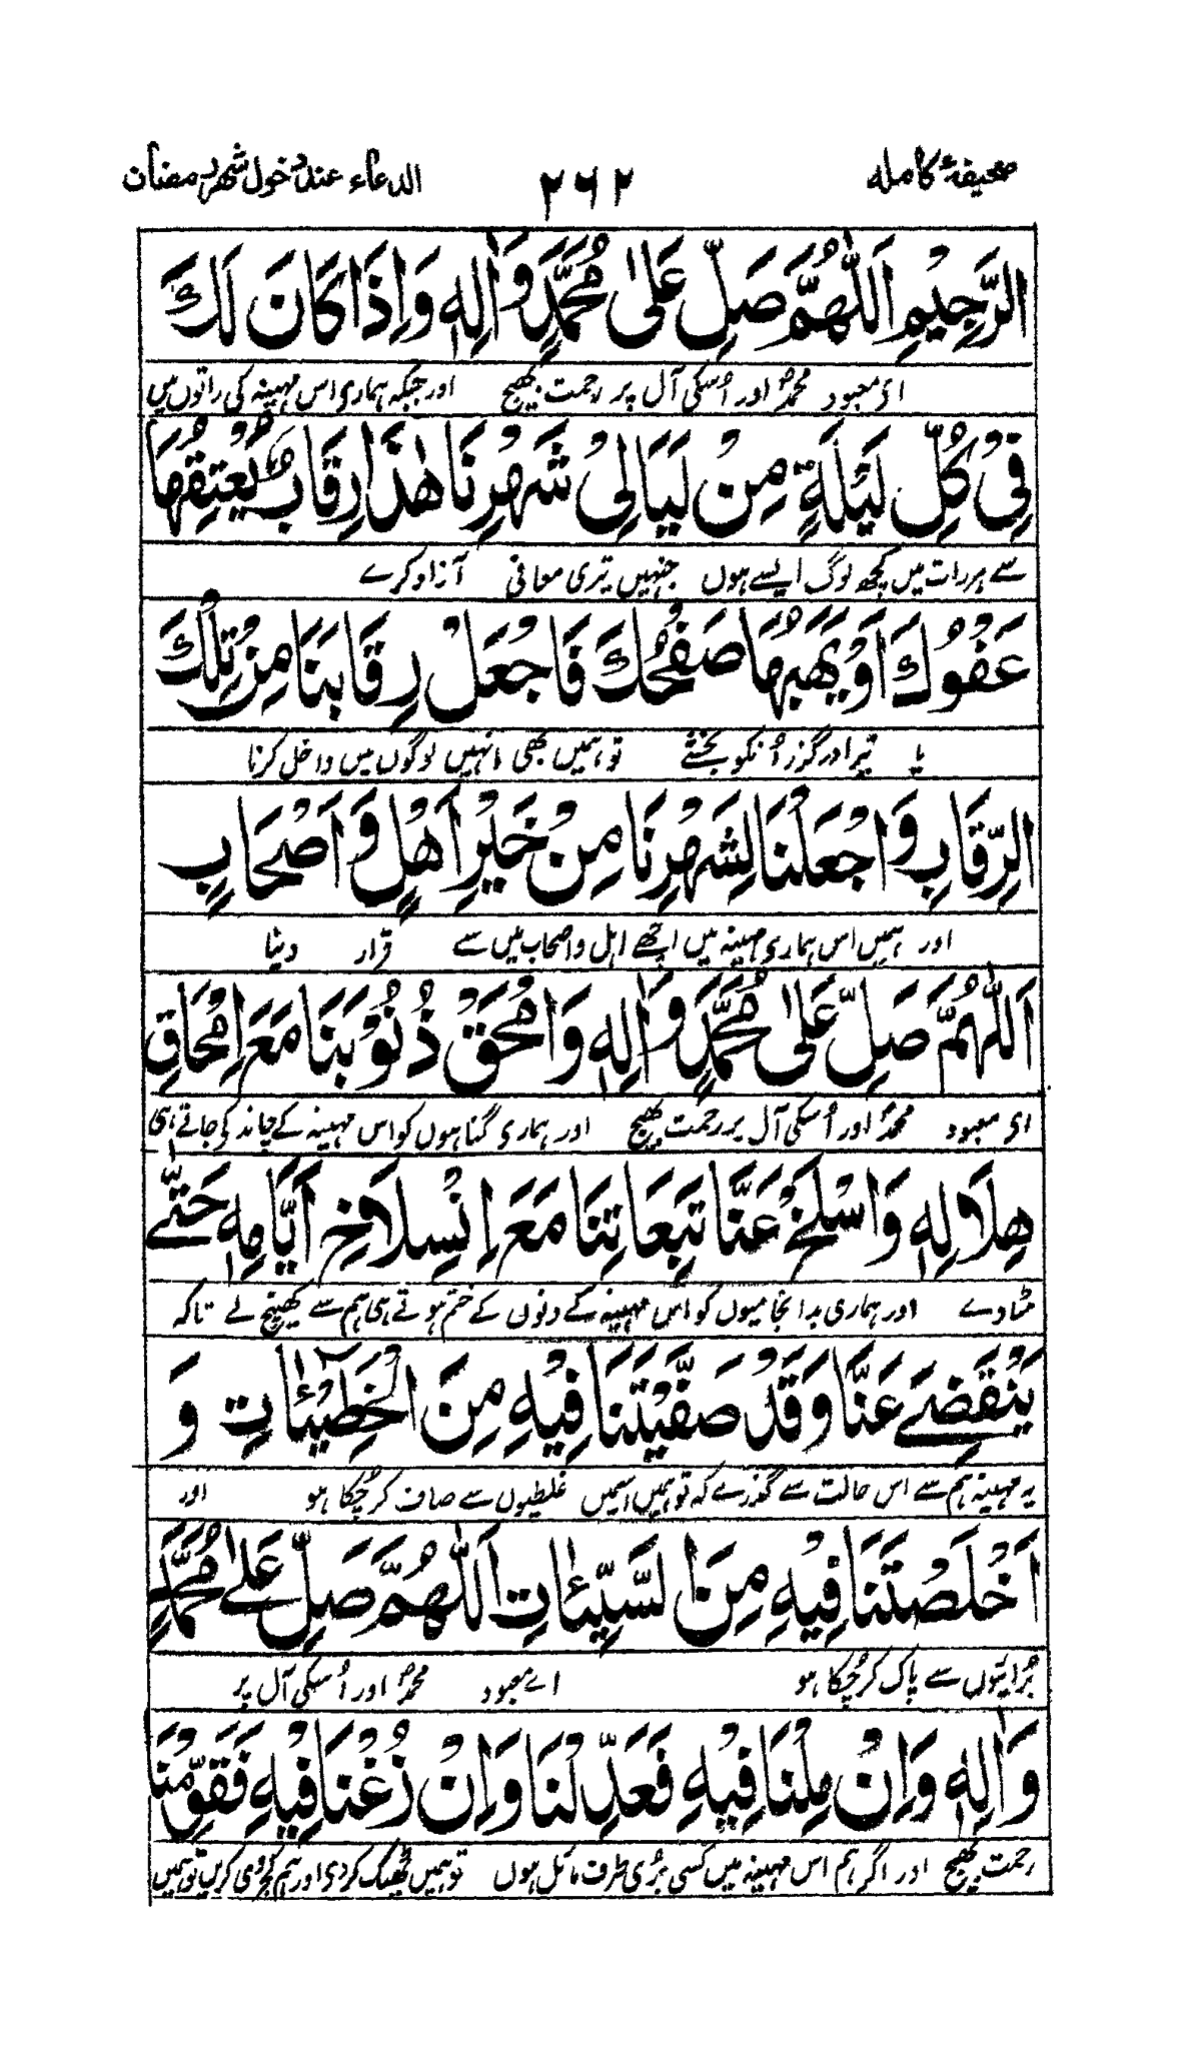 صحیفۂ کاملہ ۲۶۲ الدعاء عند دخول شهر رمضان
الرَّحِيْمِ اَللّٰهُمَّ صَلِّ عَلٰى مُحَمَّدٍ وَّاٰلِهٖ وَاِذَا كَانَ لَكَ
ای معبود محمدؐ اور اُسکی آل پر رحمت بھیج اور جبکہ ہماری اس مہینہ کی راتوں میں
فِيْ كُلِّ لَيْلَةٍ مِنْ لَيَالِيْ شَهْرِنَا هٰذَا رِقَابٌ يُعْتِقُهَا
سے ہر رات میں کچھ لوگ ایسے ہوں جنہیں تیری معافی آزاد کرے
عَفْوُكَ اَوْ يَهَبُهَا صَفْحُكَ فَاجْعَلْ رِقَابَنَا مِنْ تِلْكَ
یا تیرا درگزر اُنکو بخشے تو ہمیں بھی انہیں لوگوں میں داخل کرنا
الرِّقَابِ وَاجْعَلْنَا لِشَهْرِنَا مِنْ خَيْرِ اَهْلٍ وَّاَصْحَابٍ
اور ہمیں اس ہماری مہینہ میں اچھے اہل و اصحاب میں سے قرار دینا
اَللّٰهُمَّ صَلِّ عَلٰى مُحَمَّدٍ وَّاٰلِهٖ وَامْحَقْ ذُنُوْبَنَا مَعَ امْحَاقِ
ای معبود محمدؐ اور اُسکی آل پر رحمت بھیج اور ہماری گناہوں کو اس مہینہ کے چاند کی جاتے ہی
هِلَالِهٖ وَاسْلَخْ عَنَّا تَبِعَاتِنَا مَعَ اِنْسِلَاخِ اَيَّامِهٖ حَتّٰے
مٹادے اور ہماری بدانجامیوں کو اس مہینہ کے دنوں کے ختم ہوتے ہی ہم سے کھینچ لے تاکہ
يَنْقَضِےَ عَنَّا وَقَدْ صَفَّيْتَنَا فِيْهِ مِنَ الْخَطِيْٓئَاتِ وَ
یہ مہینہ ہم سے اس حالت سے گذرے کہ تو ہمیں اسمیں غلطیوں سے صاف کر چُکا ہو اور
اَخْلَصْتَنَا فِيْهِ مِنَ السَّيِّئٰاتِ اَللّٰهُمَّ صَلِّ عَلٰے مُحَمَّدٍ
بُرائیوں سے پاک کر چُکا ہو اے معبود محمدؐ اور اُسکی آل پر
وَّاٰلِهٖ وَاِنْ مِلْنَا فِيْهِ فَعَدِّلْنَا وَاِنْ زُغْنَا فِيْهِ فَقَوِّمْنَا
رحمت بھیج اور اگر ہم اس مہینہ میں کسی بُری طرف مائل ہوں تو ہمیں ٹھیک کردی اور ہم کجروی کریں تو ہمیں